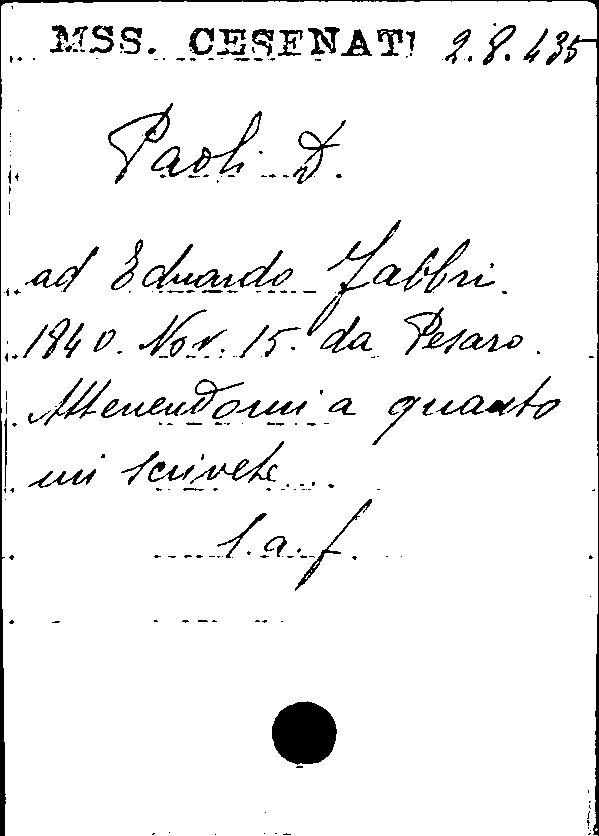 MSS. CESENATI 2.8.435
Paoli D.
ad Eduardo Fabbri.
1840. Nov. 15. da Pesaro.
Attenendomi a quanto
mi scrivete...
l.a.f.